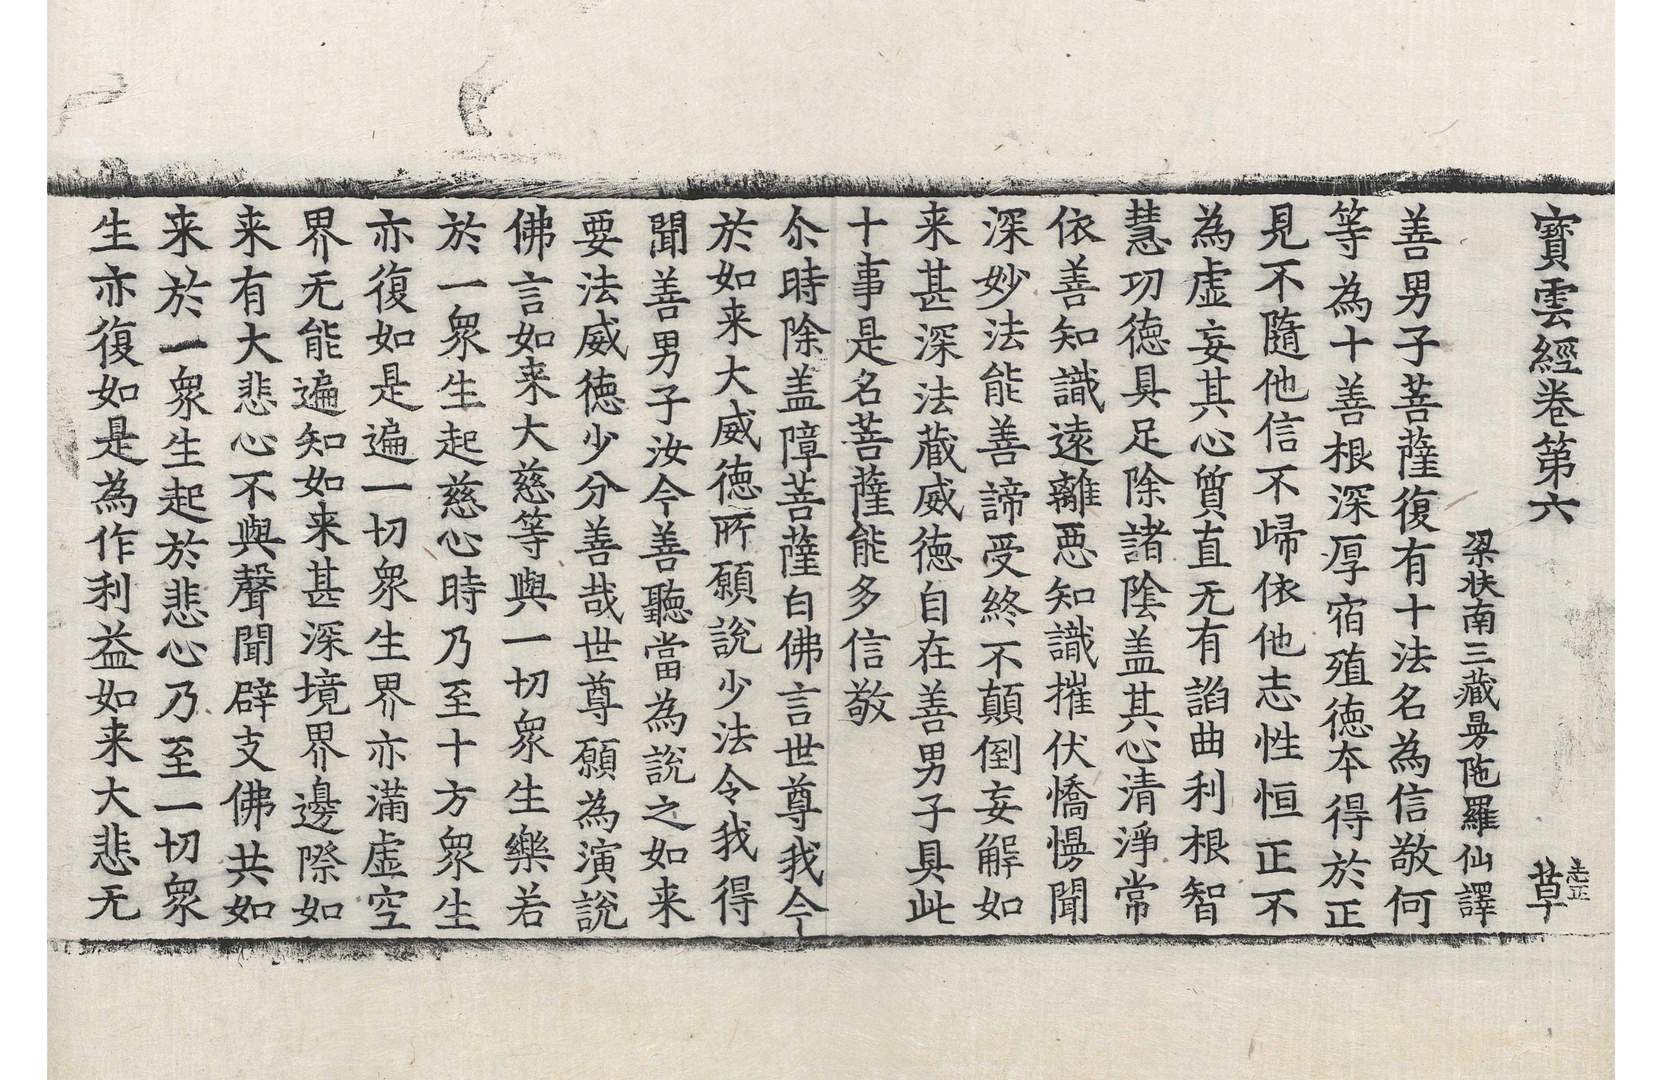 寶雲經卷第六 草
梁扶南三藏曼陁羅仙譯
善男子菩薩復有十法名為信敬何
等為十善根深厚宿殖徳本得於正
見不隨他信不歸依他志性恒正不
為虛妄其心質直无有諂曲利根智
慧功徳具足除諸陰盖其心清淨常
依善知識遠離惡知識摧伏憍慢聞
深妙法能善諦受終不顛倒妄解如
来甚深法藏威徳自在善男子具此
十事是名菩薩能多信敬
尒時除盖障菩薩白佛言世尊我今
於如来大威徳所願說少法令我得
聞善男子汝今善聽當為說之如来
要法威徳少分善哉世尊願為演說
佛言如来大慈等與一切衆生樂若
於一衆生起慈心時乃至十方衆生
亦復如是遍一切衆生界亦滿虛空
界无能遍知如来甚深境界邊際如
来有大悲心不與聲聞辟支佛共如
来於一衆生起於悲心乃至一切衆
生亦復如是為作利益如来大悲无